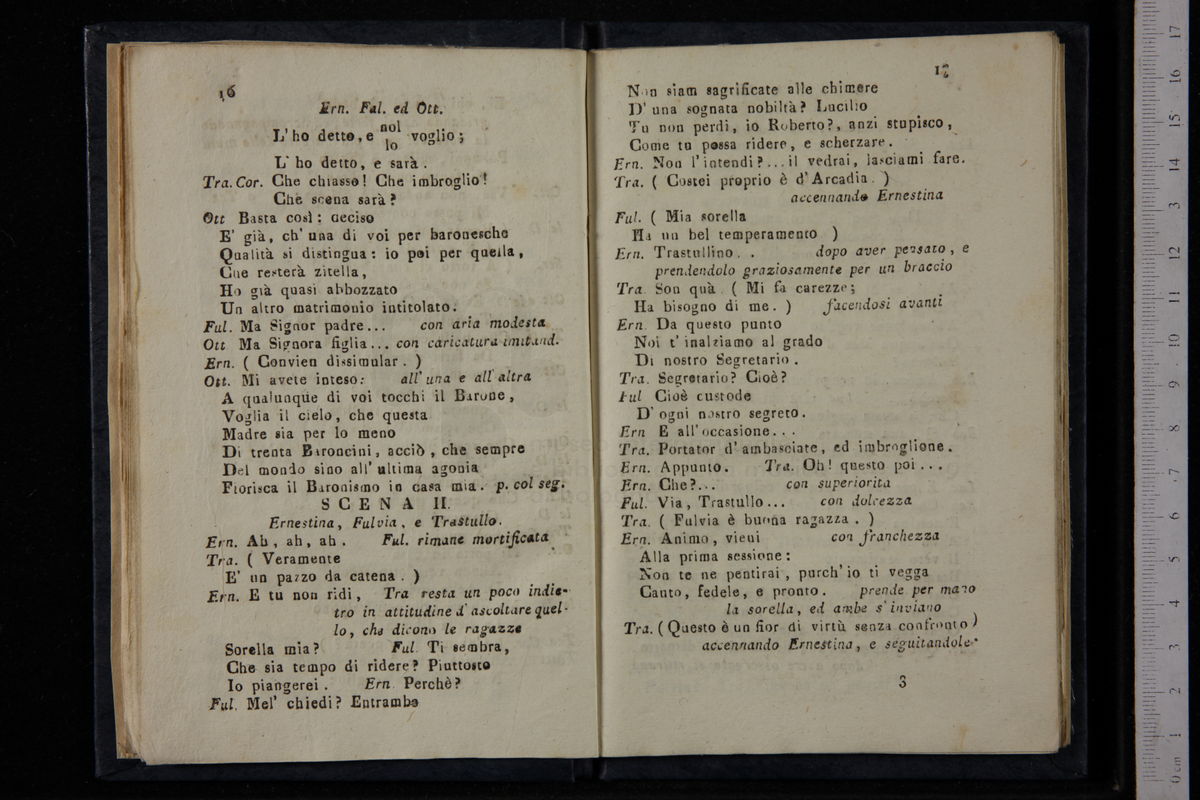 16
Ern. Ful. ed Ott.
L' ho detto, e nol / lo voglio;
L' ho detto, e sarà.
Tra. Cor. Che chiasso! Che imbroglio!
Che scena sarà?
Ott Basta così: ueciso
E' già, ch' una di voi per baronesche
Qualità si distingua: io poi per quella,
Cue resterà zitella,
Ho già quasi abbozzato
Un altro matrimonio intitolato.
Ful. Ma Signor padre... con aria modesta
Ott Ma Signora figlia... con caricatura imitand.
Ern. ( Convien dissimular. )
Ott. Mi avete inteso: all' una e all' altra
A qualunque di voi tocchi il Barone,
Voglia il cielo, che questa
Madre sia per lo meno
Di trenta Baroncini, acciò, che sempre
Del mondo sino all' ultima agonia
Fiorisca il Baronismo in casa mia. p. col seg.
SCENA II.
Ernestina, Fulvia, e Trastullo.
Ern. Ah, ah, ah. Ful. rimane mortificata
Tra. ( Veramente
E' un pazzo da catena. )
Ern. E tu non ridi, Tra resta un poco indie-
tro in attitudine d' ascoltare quel-
lo, che dicono le ragazze
Sorella mia? Ful. Ti sembra,
Che sia tempo di ridere? Piuttosto
Io piangerei. Ern. Perchè?
Ful. Mel' chiedi? Entrambe
17
Non siam sagrificate alle chimere
D' una sognata nobiltà? Lucilio
Tu non perdi, io Roberto?, anzi stupisco,
Come tu possa ridere, e scherzare.
Ern. Non l' intendi?... il vedrai, lasciami fare.
Tra. ( Costei proprio è d' Arcadia. )
accennando Ernestina
Ful. ( Mia sorella
Ha un bel temperamento )
Ern. Trastullino. . dopo aver pensato, e
prendendolo graziosamente per un braccio
Tra. Son quà. ( Mi fa carezze;
Ha bisogno di me. ) facendosi avanti
Ern. Da questo punto
Noi t' inalziamo al grado
Di nostro Segretario.
Tra. Segretario? Cioè?
Ful Cioè custode
D' ogni nostro segreto.
Ern E all' occasione...
Tra. Portator d' ambasciate, ed imbroglione.
Ern. Appunto. Tra. Oh! questo poi...
Ern. Che?... con superiorita
Ful. Via, Trastullo... con dolcezza
Tra. ( Fulvia è buona ragazza. )
Ern. Animo, vieni con franchezza
Alla prima sessione:
Non te ne pentirai, purch' io ti vegga
Cauto, fedele, e pronto. prende per mano
la sorella, ed ambe s' inviano
Tra. (Questo è un fior di virtù senza confronto)
accennando Ernestina, e seguitandole.
3
0 cm 1 2 3 4 5 6 7 8 9 10 11 12 13 14 15 16 17